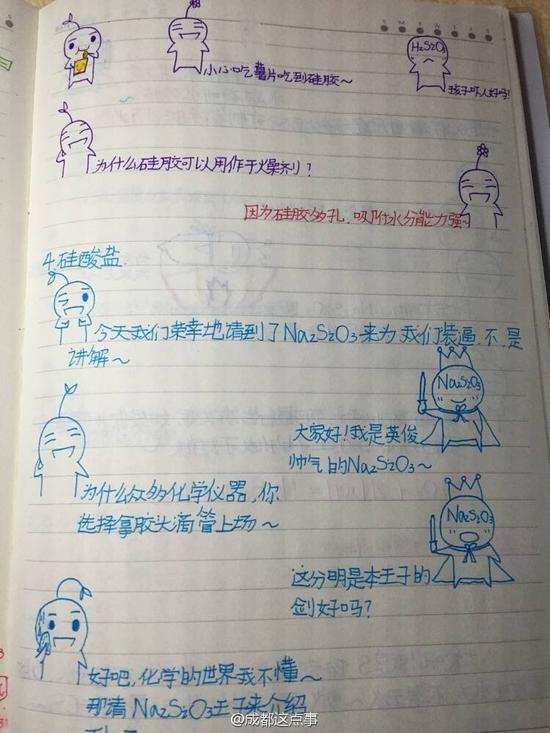 小心吃薯片吃到硅胶～
H₂SiO₃
孩子吓人好吗!
为什么硅胶可以用作干燥剂?
因为硅胶多孔,吸附水分能力强
4.硅酸盐
今天我们荣幸地请到了Na₂SiO₃来为我们装逼,不是
讲解～
Na₂SiO₃
大家好!我是英俊
帅气的Na₂SiO₃～
为什么众多化学仪器,你
选择拿胶头滴管上场～
Na₂SiO₃
这分明是本王子的
剑好吗?
好吧,化学的世界我不懂～
那请Na₂SiO₃王子来介绍
@成都这点事